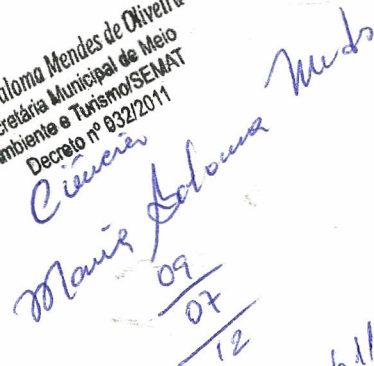 aloma Mendes de Oliveira
cretária Municipal de Meio
mbiente e Turismo/SEMAT
Decreto nº 932/2011
Ciência
Maria
09
07
12